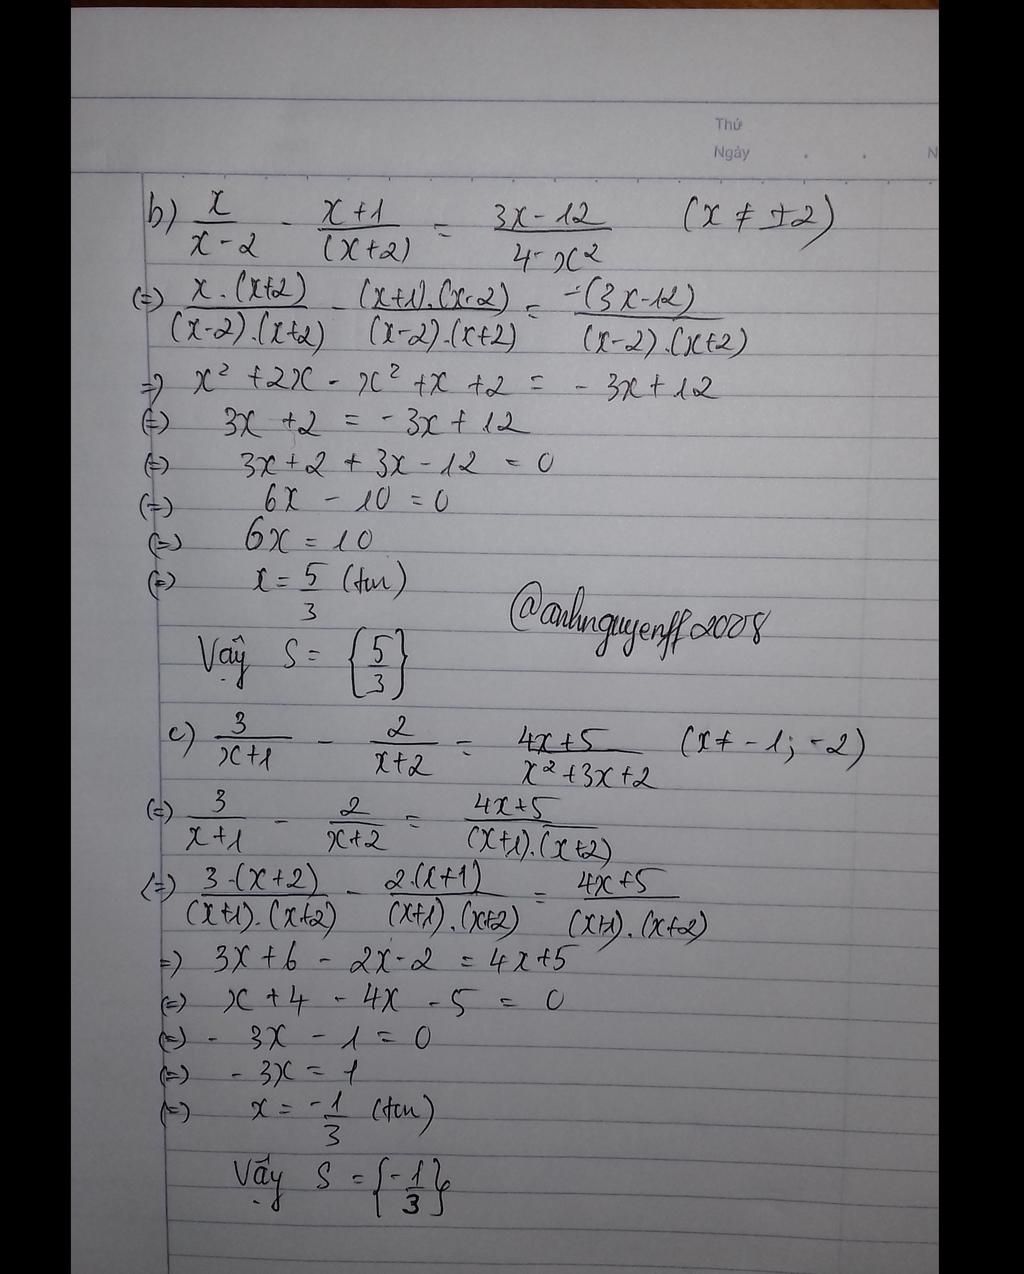 Thứ
Ngày
N
b) x/(x-2) - (x+1)/(x+2) = (3x-12)/(4-x²) (x ≠ ±2)
(=) x.(x+2)/(x-2).(x+2) - (x+1).(x-2)/(x-2).(x+2) = -(3x-12)/(x-2).(x+2)
=) x² + 2x - x² + x + 2 = - 3x + 12
(=) 3x + 2 = - 3x + 12
(=) 3x + 2 + 3x - 12 = 0
(=) 6x - 10 = 0
(=) 6x = 10
(=) x = 5/3 (tm)
@anhnguyenff2008
Vậy S = {5/3}
c) 3/(x+1) - 2/(x+2) = (4x+5)/(x²+3x+2) (x ≠ -1; -2)
(=) 3/(x+1) - 2/(x+2) = (4x+5)/(x+1).(x+2)
(=) 3.(x+2)/(x+1).(x+2) - 2.(x+1)/(x+1).(x+2) = (4x+5)/(x+1).(x+2)
=) 3x + 6 - 2x - 2 = 4x + 5
(=) x + 4 - 4x - 5 = 0
(=) - 3x - 1 = 0
(=) - 3x = 1
(=) x = -1/3 (tm)
Vậy S = {-1/3}